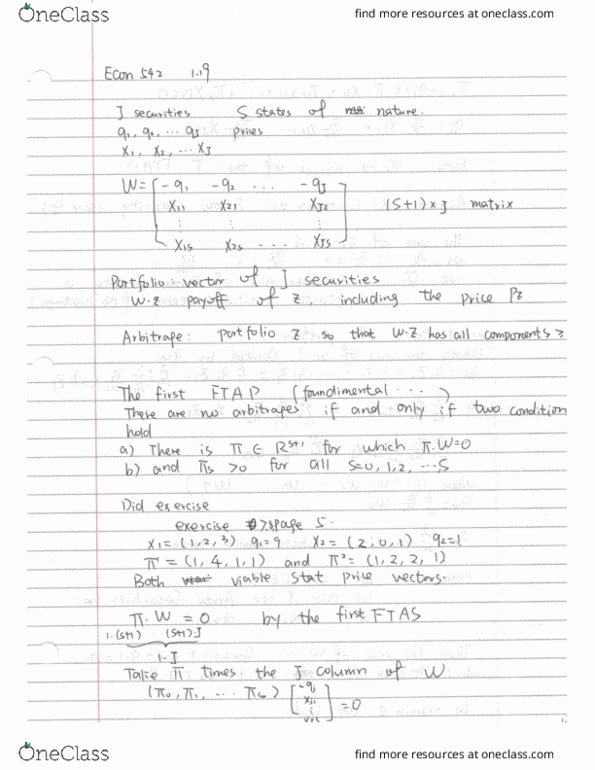 OneClass
find more resources at oneclass.com
Econ 542 1.19
J securities S states of nature.
q1, q2, ... qJ prices
X1, X2, ... XJ
W = [ -q1 -q2 ... -qJ
X11 X21 XJ2 (S+1) x J matrix
⋮ ⋮ ⋮
X1S X2S ... XJS ]
Portfolio vector of J securities
W·Z payoff of Z including the price PZ
Arbitrape: portfolio Z so that W·Z has all components ≥
The first FTAP (foundimental ... )
There are no arbitrapes if and only if two condition
hold
a) There is π ∈ R^S+1 for which π·W=0
b) and πs >0 for all S=0, 1, 2, ...S
Did exercise
exercise page 5.
X1 = (1, 2, 3) q1 = 9 X2 = (2, 0, 1) q2 = 1
π' = (1, 4, 1, 1) and π² = (1, 2, 2, 1)
Both viable Stat price vectors.
π·W = 0 by the first FTAS
1·(S+1) (S+1)·J
1·J
Take π times the J column of W
(π0, π1, ... ) [ -qj
xj1
⋮
] = 0
OneClass
find more resources at oneclass.com